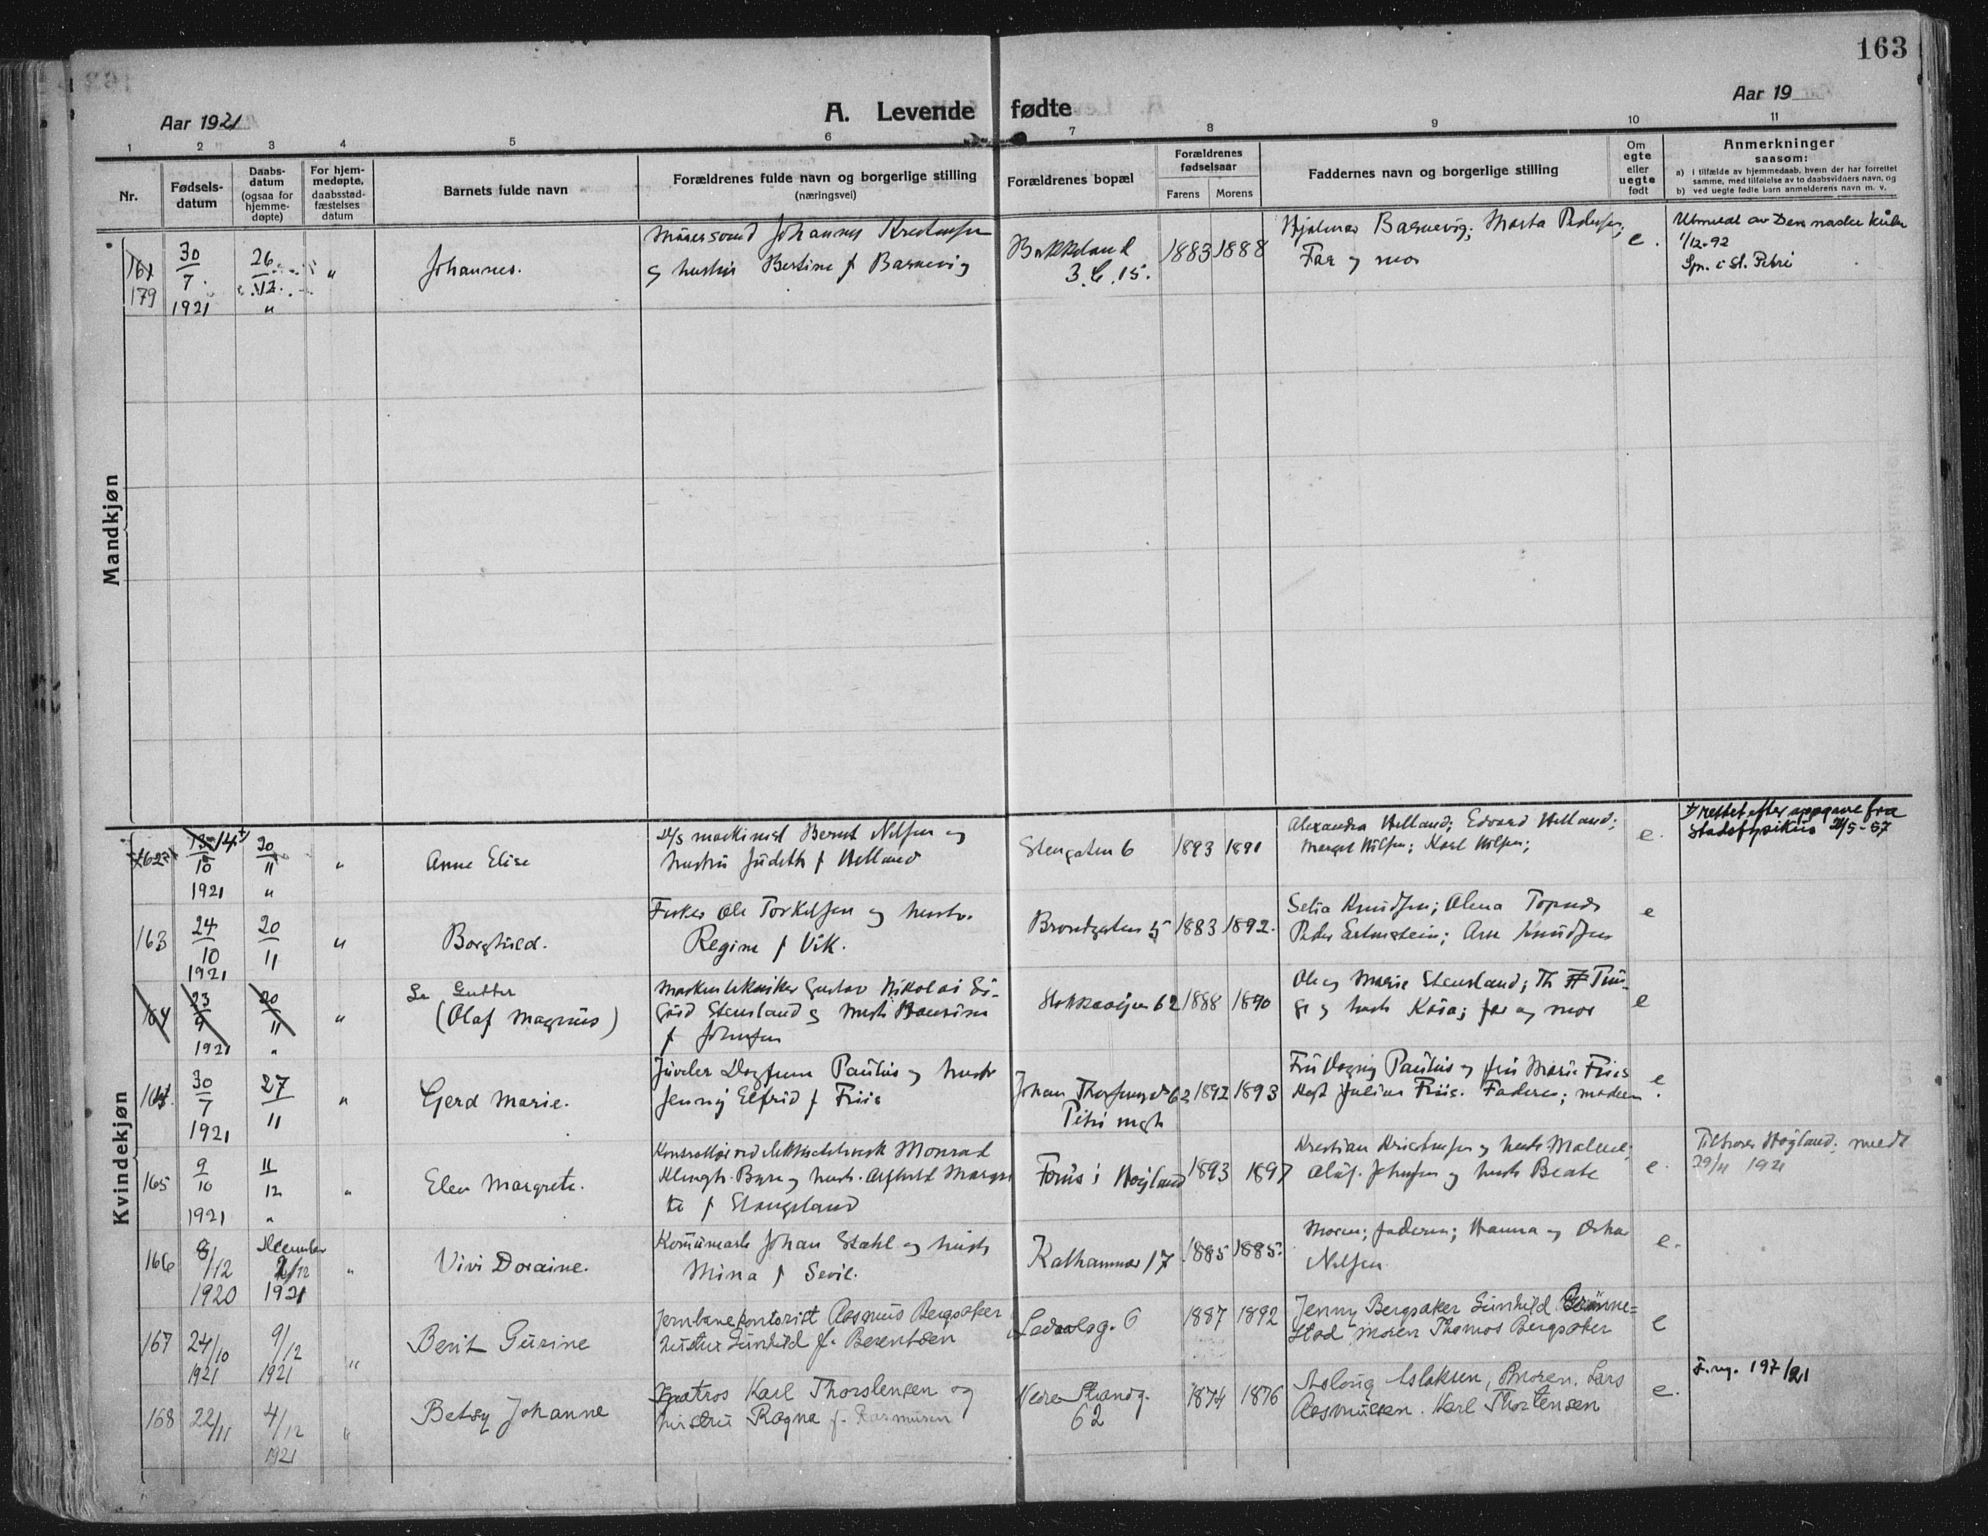 163
Aar 1921
A. Levende fødte
Aar 19
1 2 3 4 5 6 7 8 9 10 11
Nr.
Fødsels-
datum
Daabs-
datum
(ogsaa for
hjemme-
døpte)
For hjem-
medøpte,
daabsstad-
fæstelses
datum
Barnets fulde navn
Forældrenes fulde navn og borgerlige stilling
(næringsvei)
Forældrenes bopæl
Forældrenes
fødselsaar
Farens Morens
Faddernes navn og borgerlige stilling
Om
egte
eller
uegte
født
Anmerkninger
saasom:
a) i tilfælde av hjemmedaab, hvem der har forrettet
samme, med tilføielse av to daabsvidners navn, og
b) ved uegte fødte barn anmelderens navn m. v.
Mandkjøn
161
179
30/7
1921
26/12
"
"
Johannes.
Murersvend Johannes
og hustru Bertine f Barnevig
Bakkeland
3.C.15.
1883 1888
Hjalmar Barnevig; Marta
Far og mor
e.
Utmeldt av Den norske kirke
1/12-92
Spr. i St. Petri
Kvindekjøn
162
13 14/10
1921
20/11
"
"
Anne Elise
D/S maskinist Bernt Nilsen og
hustru Judith f Helland
Stengaten 6
1893 1891
Alexandra Helland; Edvard Helland;
Margot Nilsen; Karl Nilsen;
e.
rettet efter oppgave fra
Stadsfysikus 24/5-57
163
24/10
1921
20/11
"
Borghild.
Fisker Ole Torkelsen og hustr.
Regine f Vik.
Brondgaten 5
1883 1892.
Knudsen; Olena Topnes
Peder; Arne Knudsen
e
164
23/9
1921
20/11
"
"
Se Gutter
(Olaf Magnus)
Gustav Nikolai Si-
gurd Stensland og hustr
f Johnsen
62 1888 1890
Ole og Marie Stensland; Th
og hustr Kaia; far og mor
e
164.
30/7
1921
27/11
"
Gerd Marie.
Juveler Dagfinn Paulus og hustr
Jenny Elfrid f Friis
Johan 62
Petri mgh
1892 1893
Fru Dagny Paulus og fru Marie Friis
Julius Friis. Faderen; moderen
e.
165
9/10
1921
11/12
"
"
Elen Margrete.
Monrad
og hustr. Margre
te f Stangeland
Forus i Høiland
1893 1897
Kristian og hustr Malene;
Olaf Johnsen og hustr Beate
e.
Tilhører Høyland: meldt
29/11 1921
166
9/12
1920
December
2/12
1921
"
Vivi Doraine.
Johan Stahl og hustr
Mina f Sevil.
Kalhammar 17
1885 1885.
Moren; faderen; Hanna og Oskar
Nilsen
e.
167
24/10
1921
9/12
1921
"
Berit Gurine
Jernbanekontorist Rasmus Bergsaker
hustru Gunhild f. Berentsen
Ledaalsg. 6
1887 1892
Jenny Bergsaker Gunhild Grønne=
stad moren Thomas Bergsaker
e
168
22/11
4/12
1921
"
Betsy Johanne
Matros Karl Thorstensen og
hustru Ragna f. Rasmussen
Nedre Strandg.
62
1874 1876
Aslaug Aslaksen, moren. Lars
Rasmussen. Karl Thorstensen
e.
F. rg. 197/21